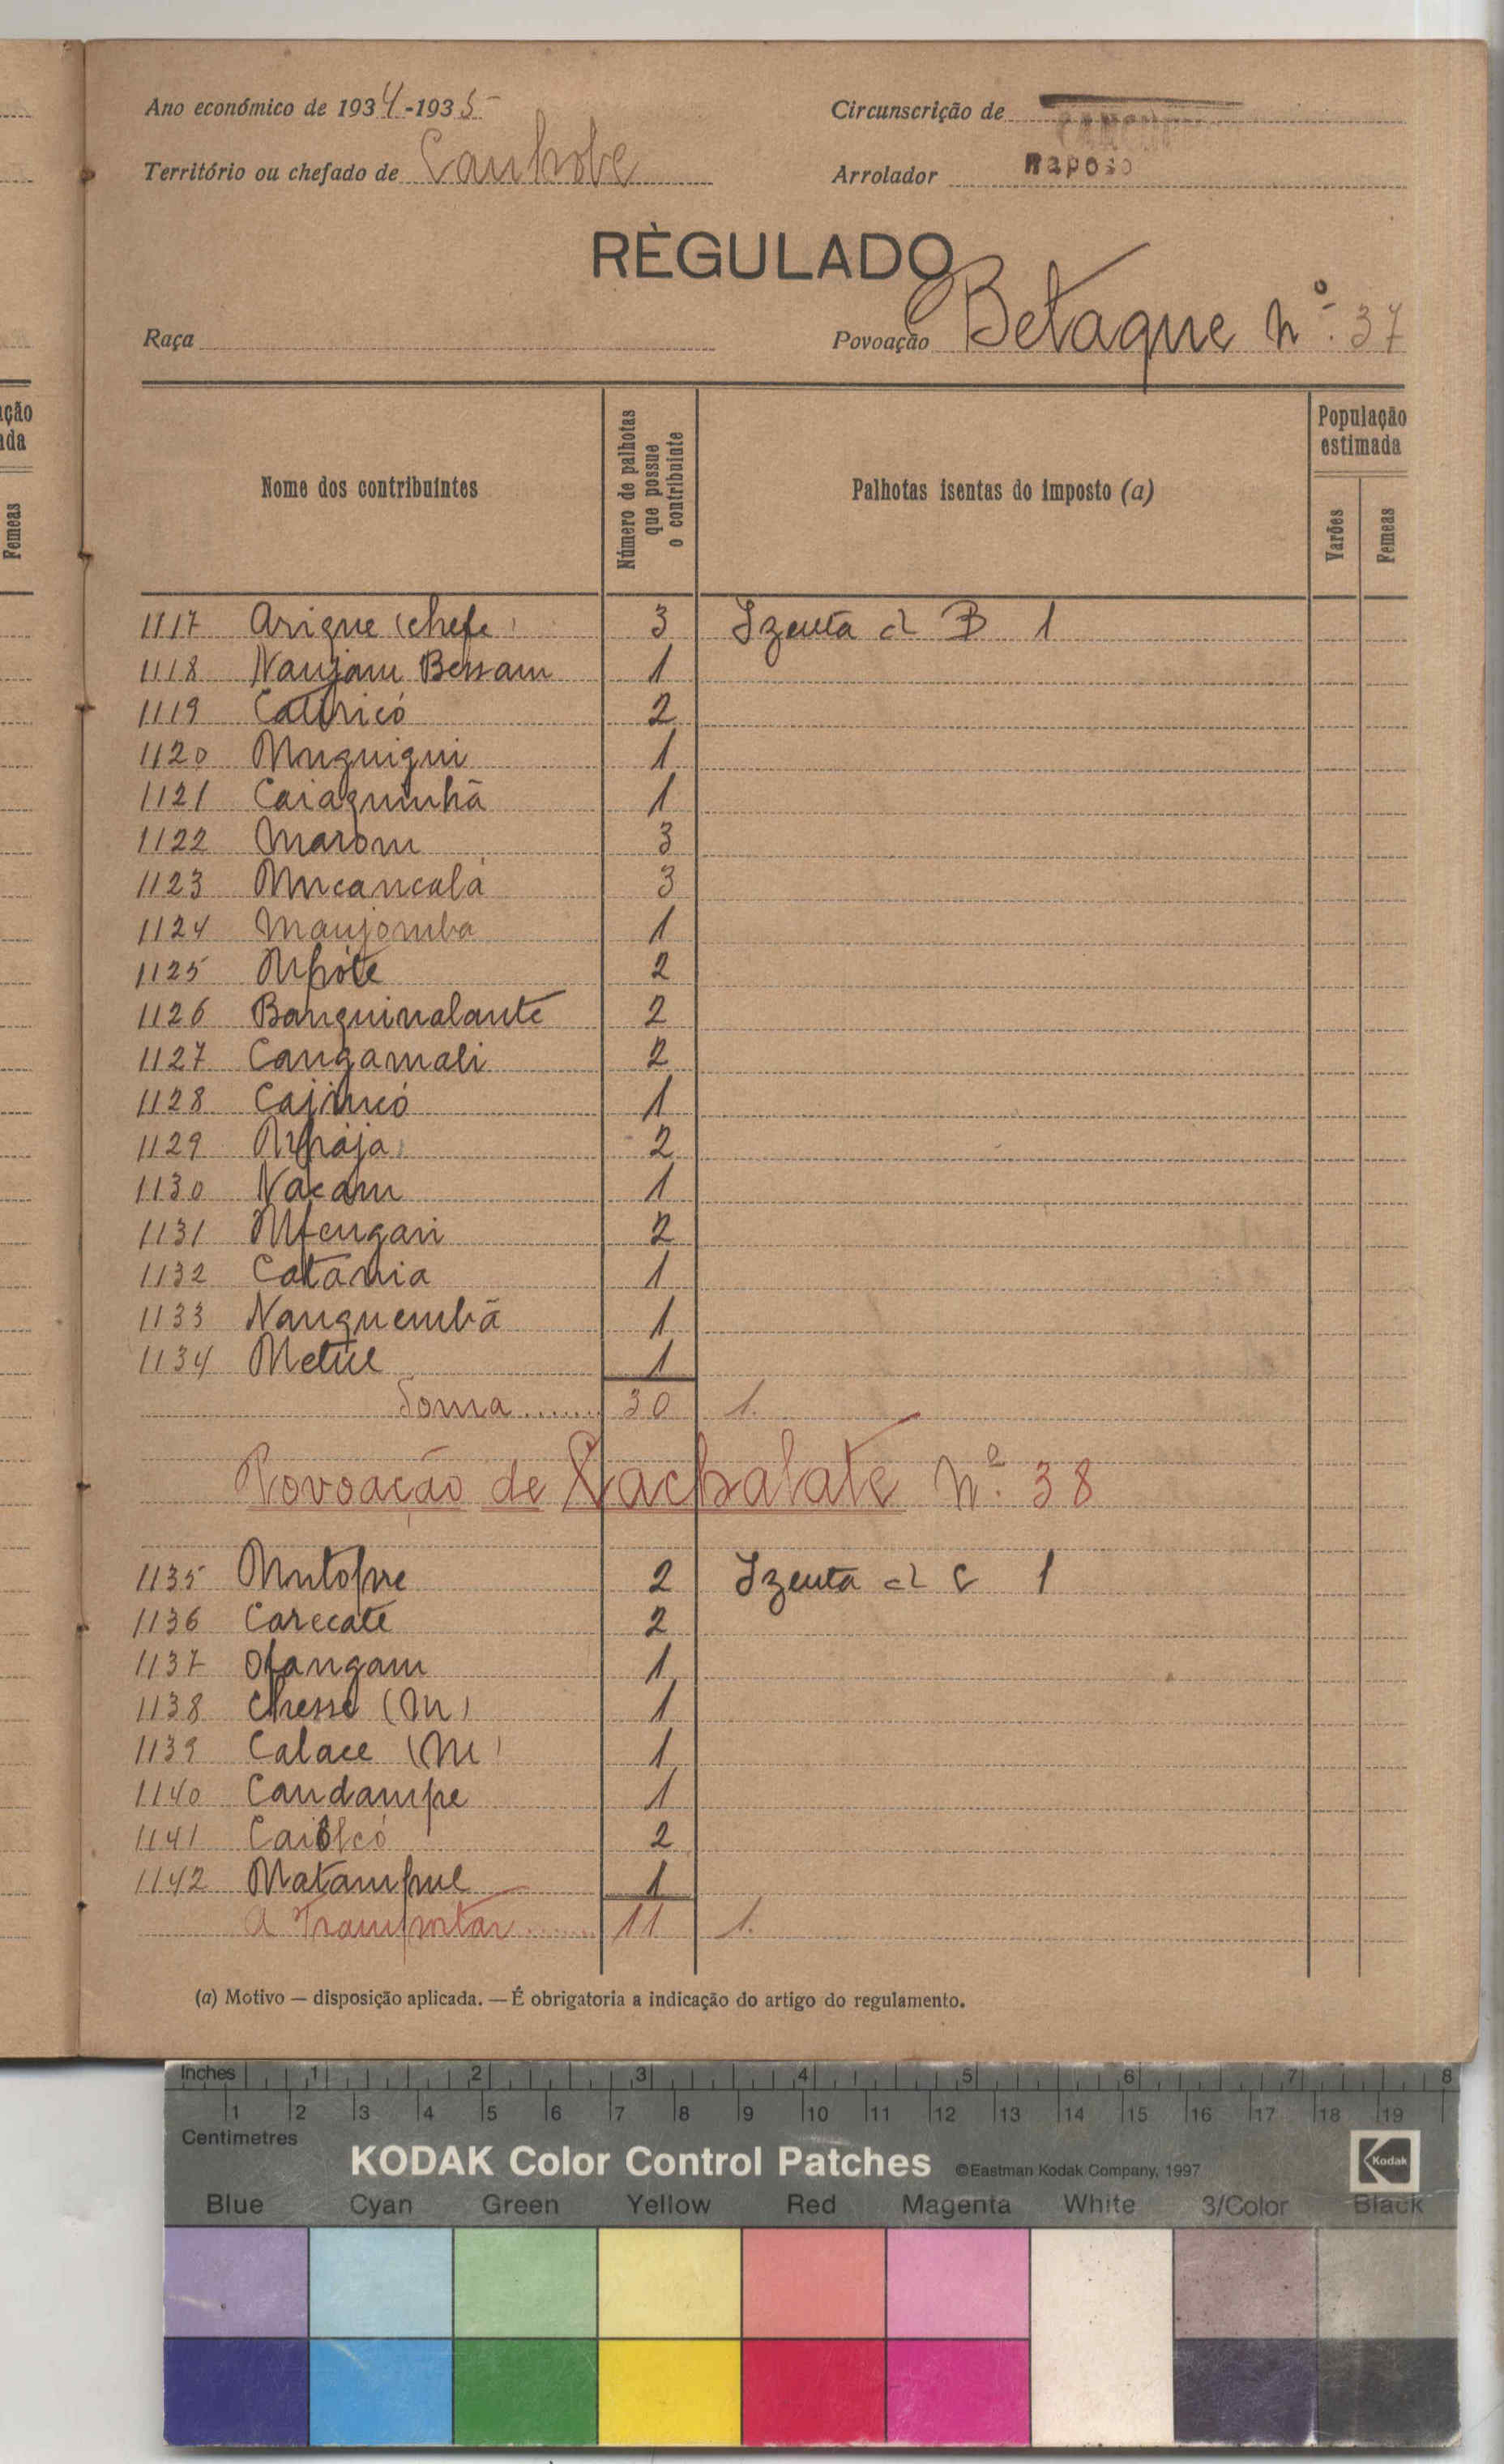 Ano económico de 1934-1935
Circunscrição de
Território ou chefado de Canhobe
Arrolador Raposo
RÈGULADO
Raça
Povoação Betaque nº. 37
Nome dos contribuintes
Número de palhotas que possue o contribuinte
Palhotas isentas do imposto (a)
População estimada
Varões
Femeas
ção
ada
Femeas
1117 Arique (chefe) 3 Izenta al B 1
1118 Naujam Bessam 1
1119 Caturicó 2
1120 Muguigui 1
1121 Caiaguinhã 1
1122 Marom 3
1123 Mucancalá 3
1124 Manjomba 1
1125 Mpóte 2
1126 Banguinalante 2
1127 Cangamali 2
1128 Cajincó 1
1129 Mpája 2
1130 Nacam 1
1131 Mfengari 2
1132 Catânia 1
1133 Nanguembã 1
1134 Metue 1
Soma ....... 30 1.
Povoação de Cachalate Nº. 38
1135 Mutopre 2 Izenta al C 1
1136 Carecate 2
1137 Ofangam 1
1138 Chesse (M) 1
1139 Calace (M) 1
1140 Candampe 1
1141 2
1142 Matampul 1
A Transportar ....... 11 1.
(a) Motivo — disposição aplicada. — É obrigatoria a indicação do artigo do regulamento.
Inches 1 2 3 4 5 6 7 8
1 2 3 4 5 6 7 8 9 10 11 12 13 14 15 16 17 18 19
Centimetres
KODAK Color Control Patches ©Eastman Kodak Company, 1997 Kodak
Blue Cyan Green Yellow Red Magenta White 3/Color Black